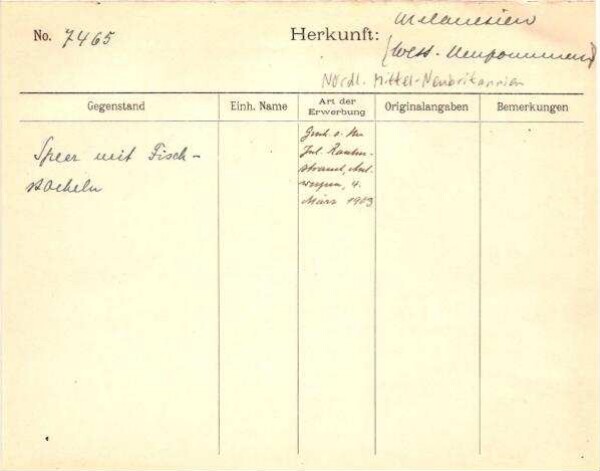 No. 7465
Herkunft: Melanesien
(West-Neupommern)
Nördl. Mittel-Neubritannien
Gegenstand Einh. Name Art der Erwerbung Originalangaben Bemerkungen
Speer mit Fisch-
stacheln
Gesch. v. Hn
Jul. Rauten-
strauch, Ant-
werpen, 4.
März 1903